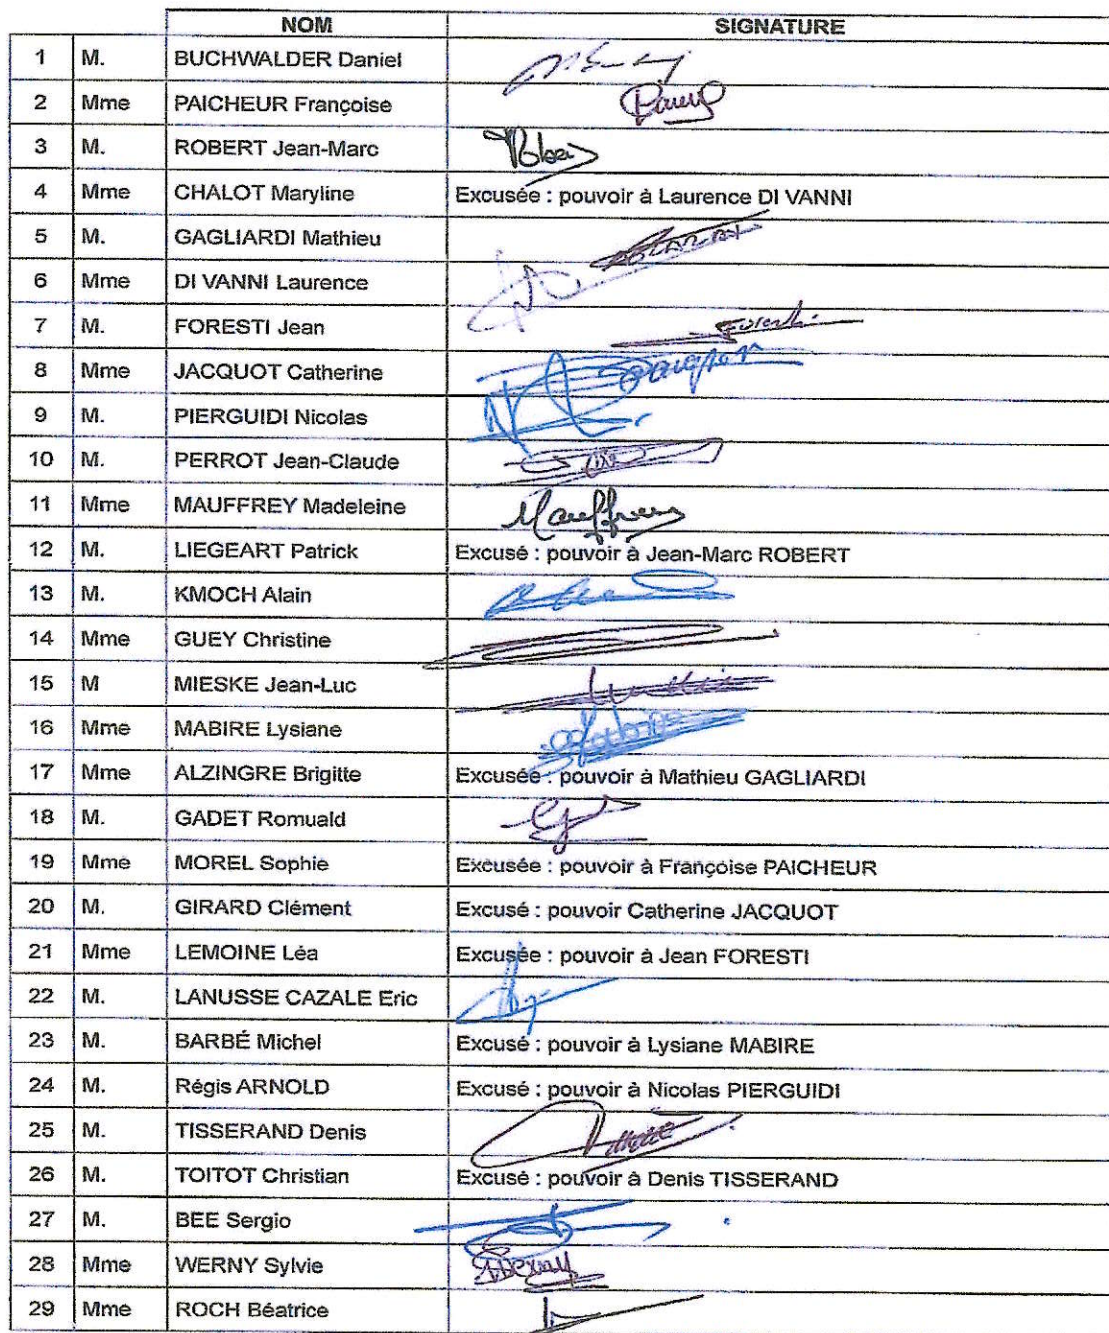 NOM SIGNATURE
1 M. BUCHWALDER Daniel
2 Mme PAICHEUR Françoise
3 M. ROBERT Jean-Marc
4 Mme CHALOT Maryline Excusée : pouvoir à Laurence DI VANNI
5 M. GAGLIARDI Mathieu
6 Mme DI VANNI Laurence
7 M. FORESTI Jean
8 Mme JACQUOT Catherine
9 M. PIERGUIDI Nicolas
10 M. PERROT Jean-Claude
11 Mme MAUFFREY Madeleine Mauffrey
12 M. LIEGEART Patrick Excusé : pouvoir à Jean-Marc ROBERT
13 M. KMOCH Alain
14 Mme GUEY Christine
15 M MIESKE Jean-Luc
16 Mme MABIRE Lysiane
17 Mme ALZINGRE Brigitte Excusée : pouvoir à Mathieu GAGLIARDI
18 M. GADET Romuald
19 Mme MOREL Sophie Excusée : pouvoir à Françoise PAICHEUR
20 M. GIRARD Clément Excusé : pouvoir Catherine JACQUOT
21 Mme LEMOINE Léa Excusée : pouvoir à Jean FORESTI
22 M. LANUSSE CAZALE Eric
23 M. BARBÉ Michel Excusé : pouvoir à Lysiane MABIRE
24 M. Régis ARNOLD Excusé : pouvoir à Nicolas PIERGUIDI
25 M. TISSERAND Denis
26 M. TOITOT Christian Excusé : pouvoir à Denis TISSERAND
27 M. BEE Sergio
28 Mme WERNY Sylvie
29 Mme ROCH Béatrice